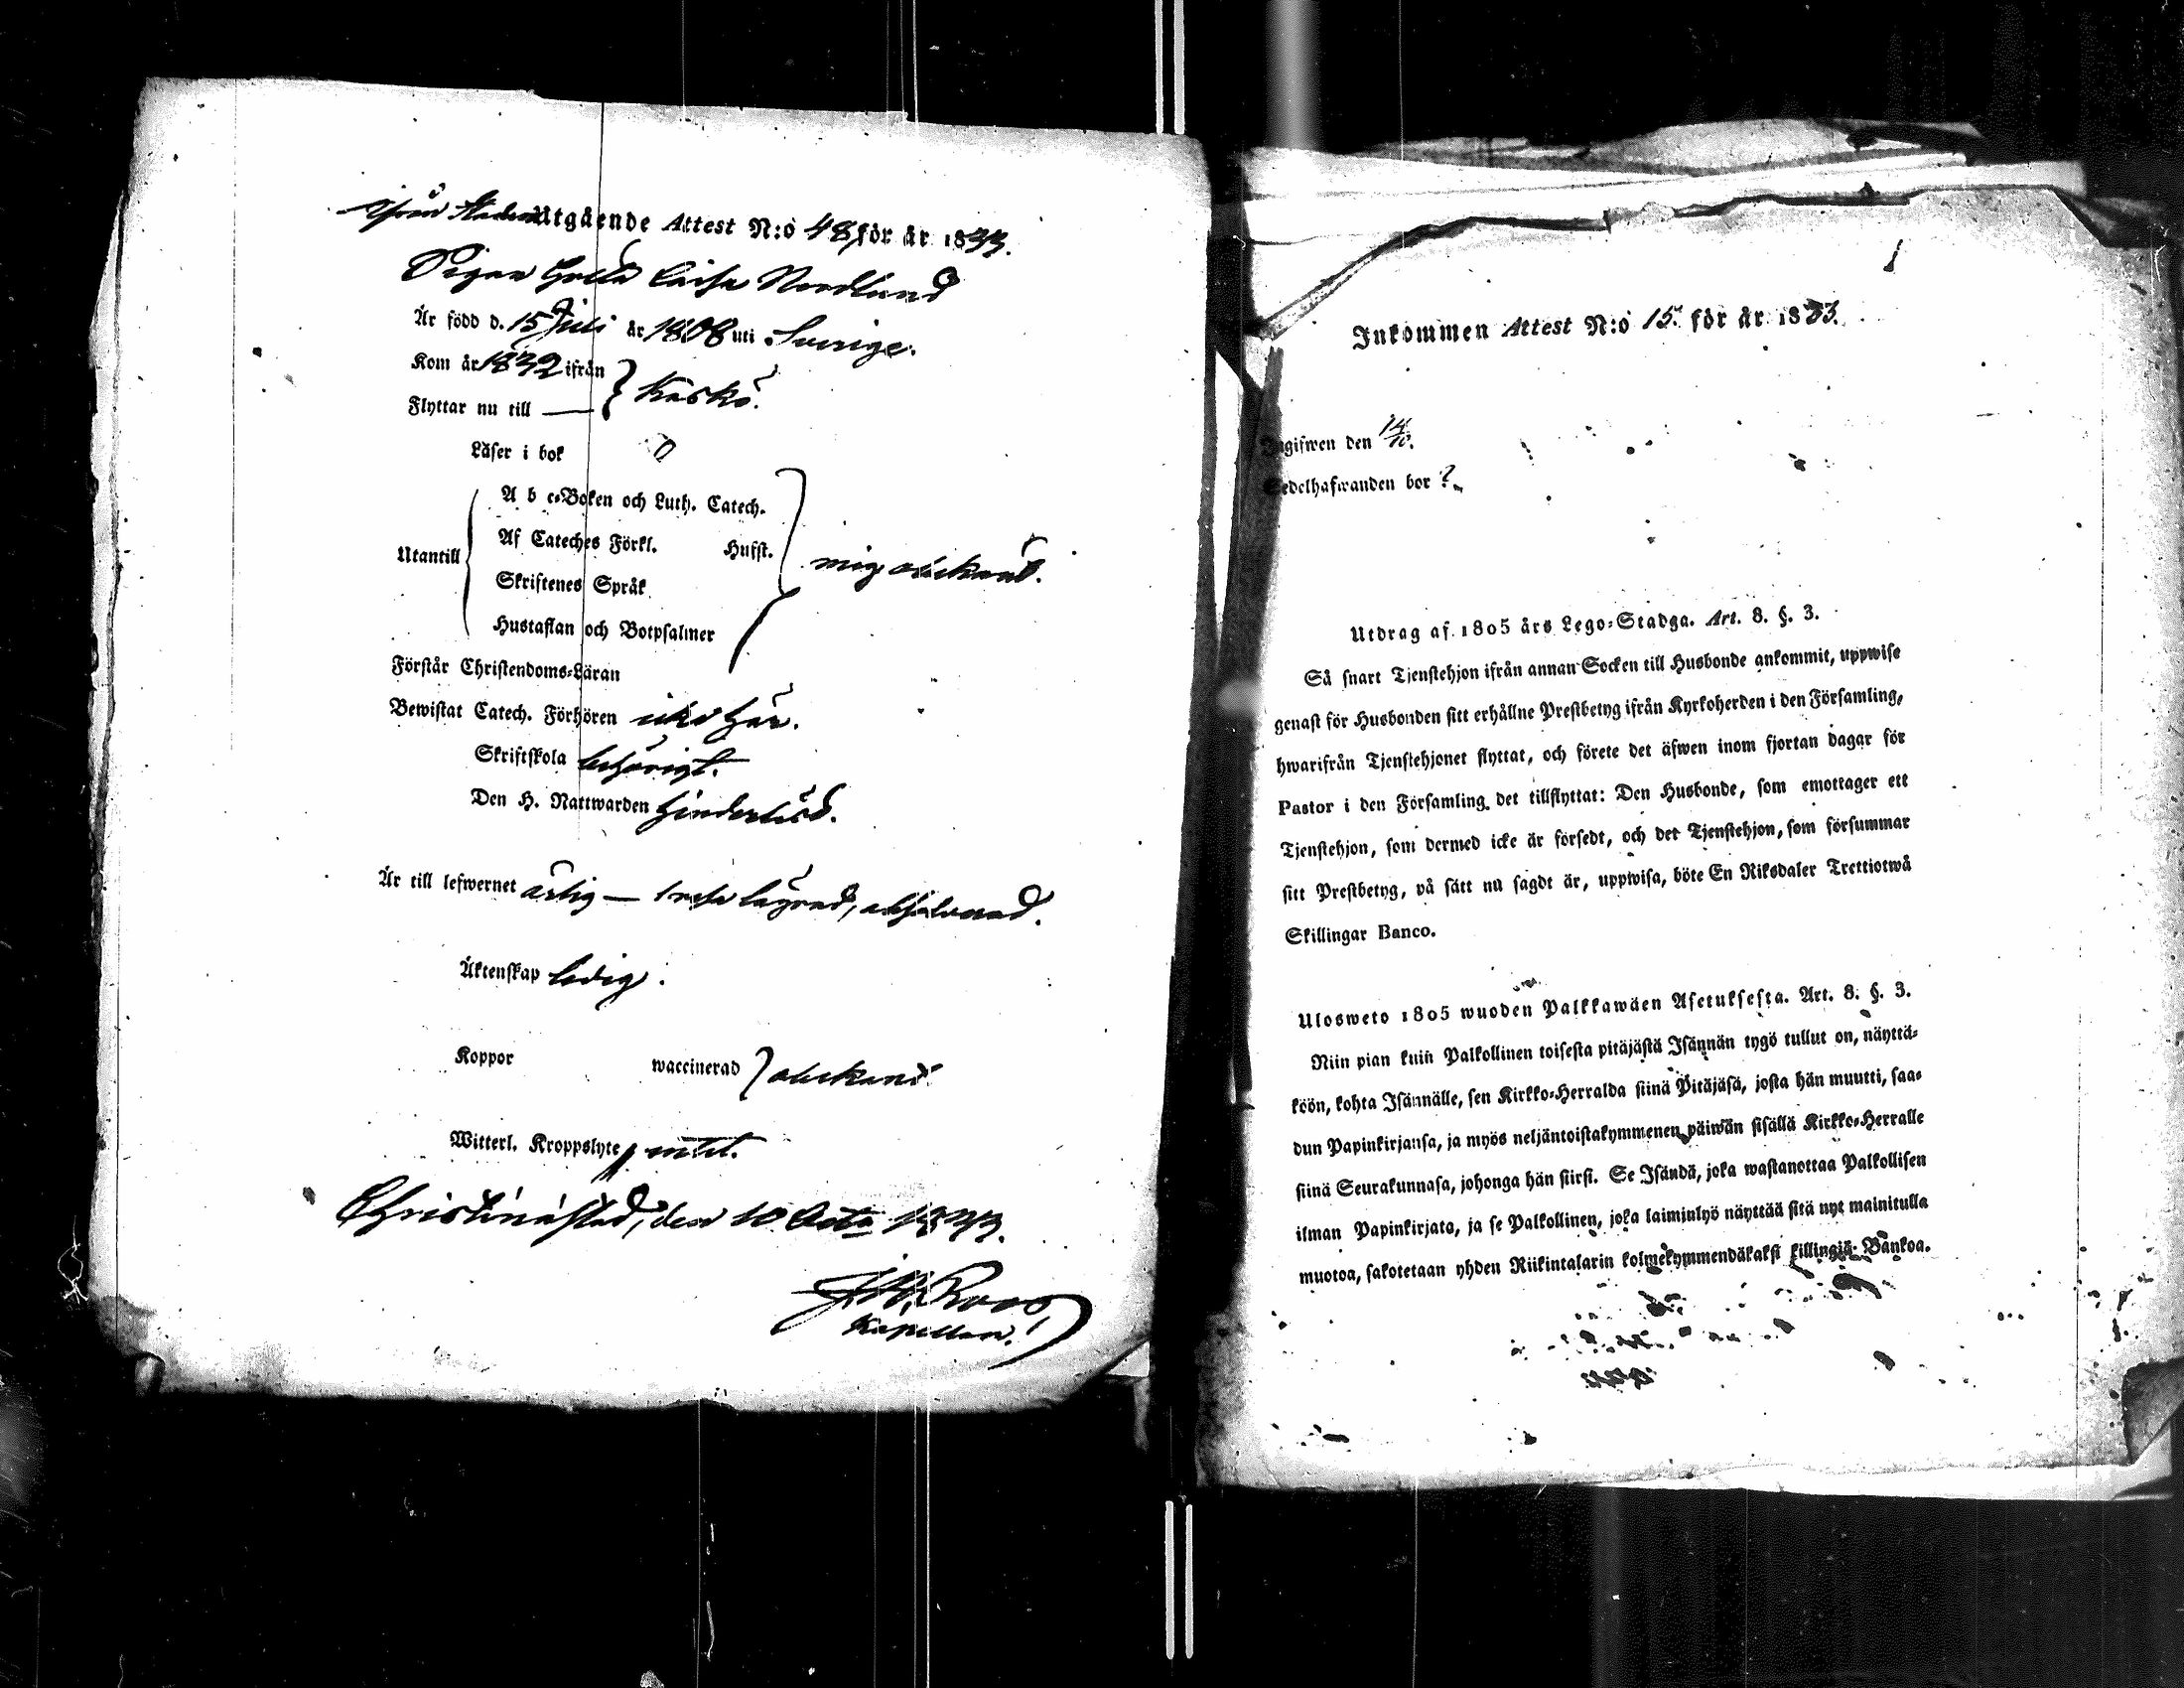 ifrån Staden Utgående Attest N:o 48 för år 1833.
Pigan Greta Caisa Nordlund
Är född d. 15 Juli år 1808 uti Sverige.
Kom år 1832 ifrån
Flyttar nu till — } Kaskö.
Läser i bok
A b c-Boken och Luth. Catech.
Af Cateches Förkl. Husst.
Utantill mig obekant.
Skriftenes Språk
Hustaflan och Botpsalmer
Förstår Christendoms-Läran
Bewistat Catech. Förhören icke här.
Skriftskola behörigt.
Den H. Nattwarden hinderlöst.
Är till lefwernet ärlig — 1 resa lägrad, absolverad.
Äktenskap ledig.
Koppor waccinerad } obekant
Witterl. Kroppslyte intet.
Christinæstad, den 10 Octo 1833.
Roos
Kapellan.
Inkommen Attest N:o 15. för år 1833.
Ingifwen den 14/10.
Sedelhafwanden bor ?
Utdrag af 1805 års Lego-Stadga. Art. 8. §. 3.
Så snart Tjenstehjon ifrån annan Socken till Husbonde ankommit, uppwise
genast för Husbonden sitt erhållne Prestbetyg ifrån Kyrkoherden i den Församling,
hwarifrån Tjenstehjonet flyttat, och förete det äfwen inom fjortan dagar för
Pastor i den Församling det tillflyttat: Den Husbonde, som emottager ett
Tjenstehjon, som dermed icke är försedt, och det Tjenstehjon, som försummar
sitt Prestbetyg, på sätt nu sagdt är, uppwisa, böte En Riksdaler Trettiotwå
Skillingar Banco.
Ulosweto 1805 wuoden Palkkawäen Asetuksesta. Art. 8. §. 3.
Niin pian kuin Palkollinen toisesta pitäjästä Isännän tygö tullut on, näyttä-
köön, kohta Isännälle, sen Kirkko-Herralda siinä Pitäjäsä, josta hän muutti, saa-
dun Papinkirjansa, ja myös neljäntoistakymmenen päiwän sisällä Kirkko-Herralle
siinä Seurakunnasa, johonga hän siirsi. Se Isändä, joka wastanottaa Palkollisen
ilman Papinkirjata, ja se Palkollinen, joka laiminlyö näyttää sitä nyt mainitulla
muotoa, sakotetaan yhden Riikintalarin kolmekymmendäkaksi killingiä Bankoa.